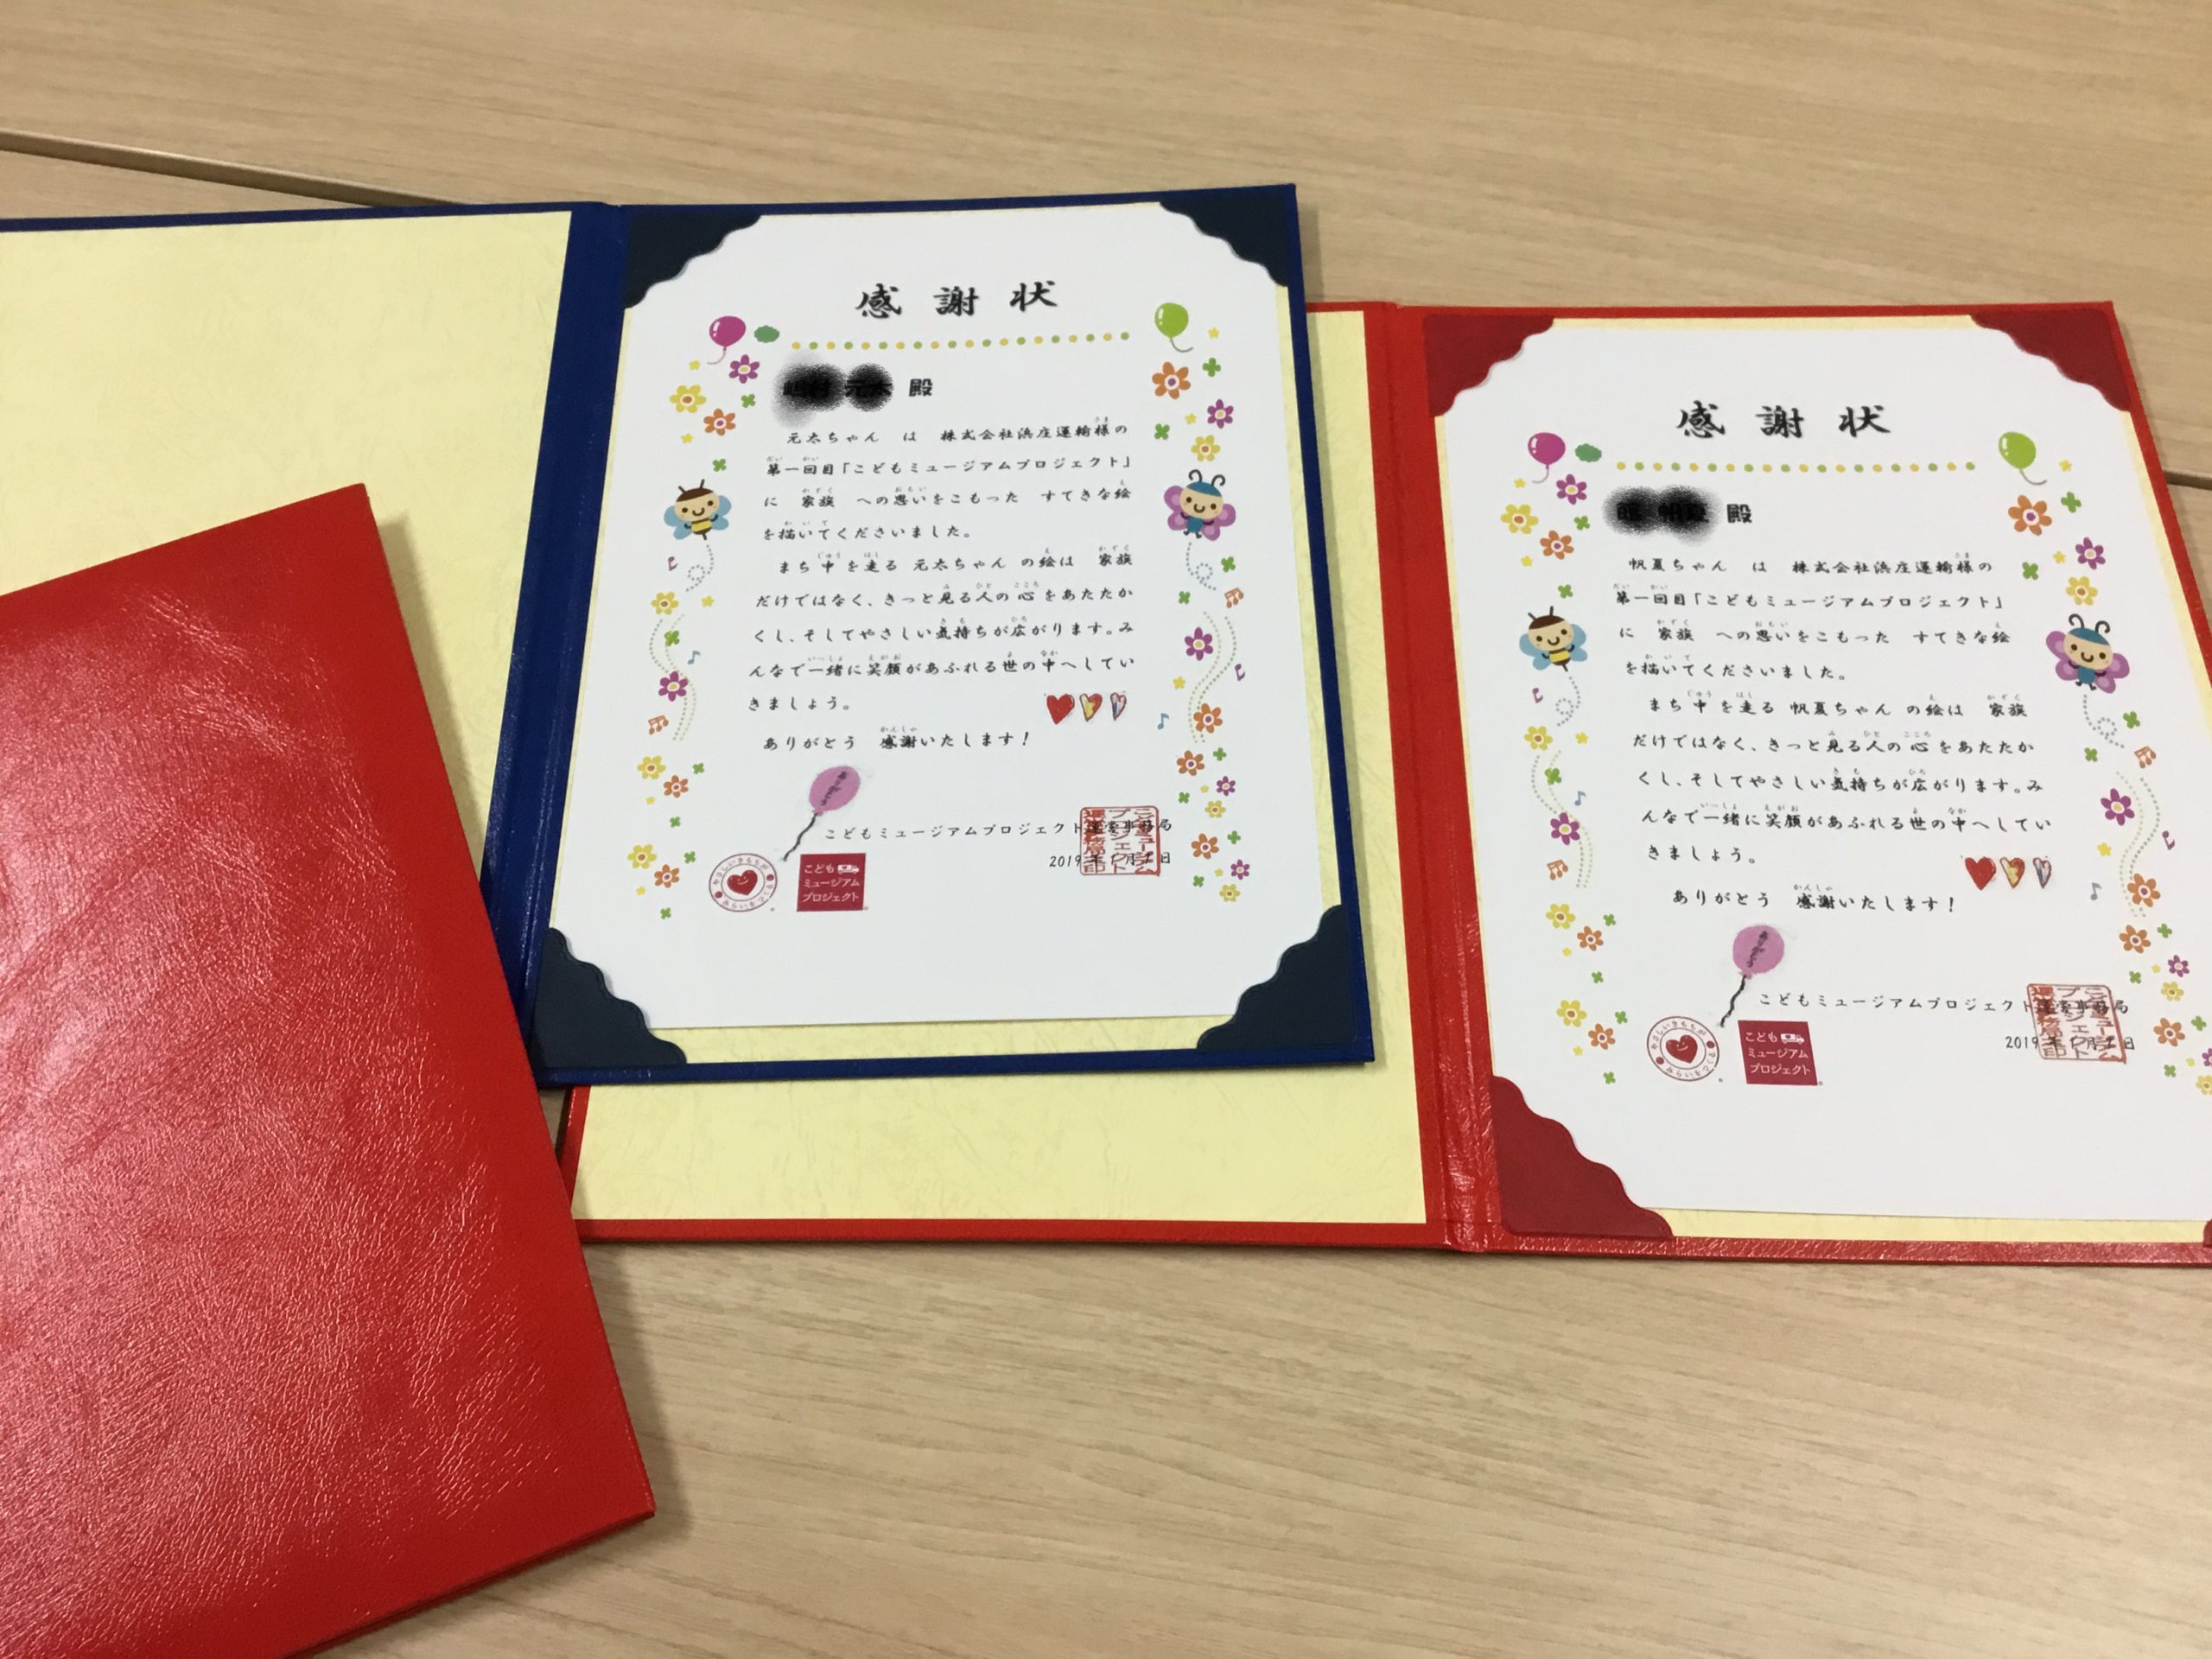 感謝状
殿
元太ちゃん は 株式会社浜庄運輸様の
第一回目「こどもミュージアムプロジェクト」
に 家族 への思いをこもった すてきな絵
を描いてくださいました。
まち中を走る 元太ちゃん の絵は 家族
だけではなく、きっと見る人の心をあたたか
くし、そしてやさしい気持ちが広がります。み
んなで一緒に笑顔があふれる世の中へしてい
きましょう。
ありがとう 感謝いたします!
こどもミュージアムプロジェクト運営事務局
2019年
こども
ミュージアム
プロジェクト
感謝状
殿
帆夏ちゃん は 株式会社浜庄運輸様の
第一回目「こどもミュージアムプロジェクト」
に 家族 への思いをこもった すてきな絵
を描いてくださいました。
まち中を走る 帆夏ちゃん の絵は 家族
だけではなく、きっと見る人の心をあたたか
くし、そしてやさしい気持ちが広がります。み
んなで一緒に笑顔があふれる世の中へしてい
きましょう。
ありがとう 感謝いたします!
こどもミュージアムプロジェクト運営事務局
2019年
こども
ミュージアム
プロジェクト